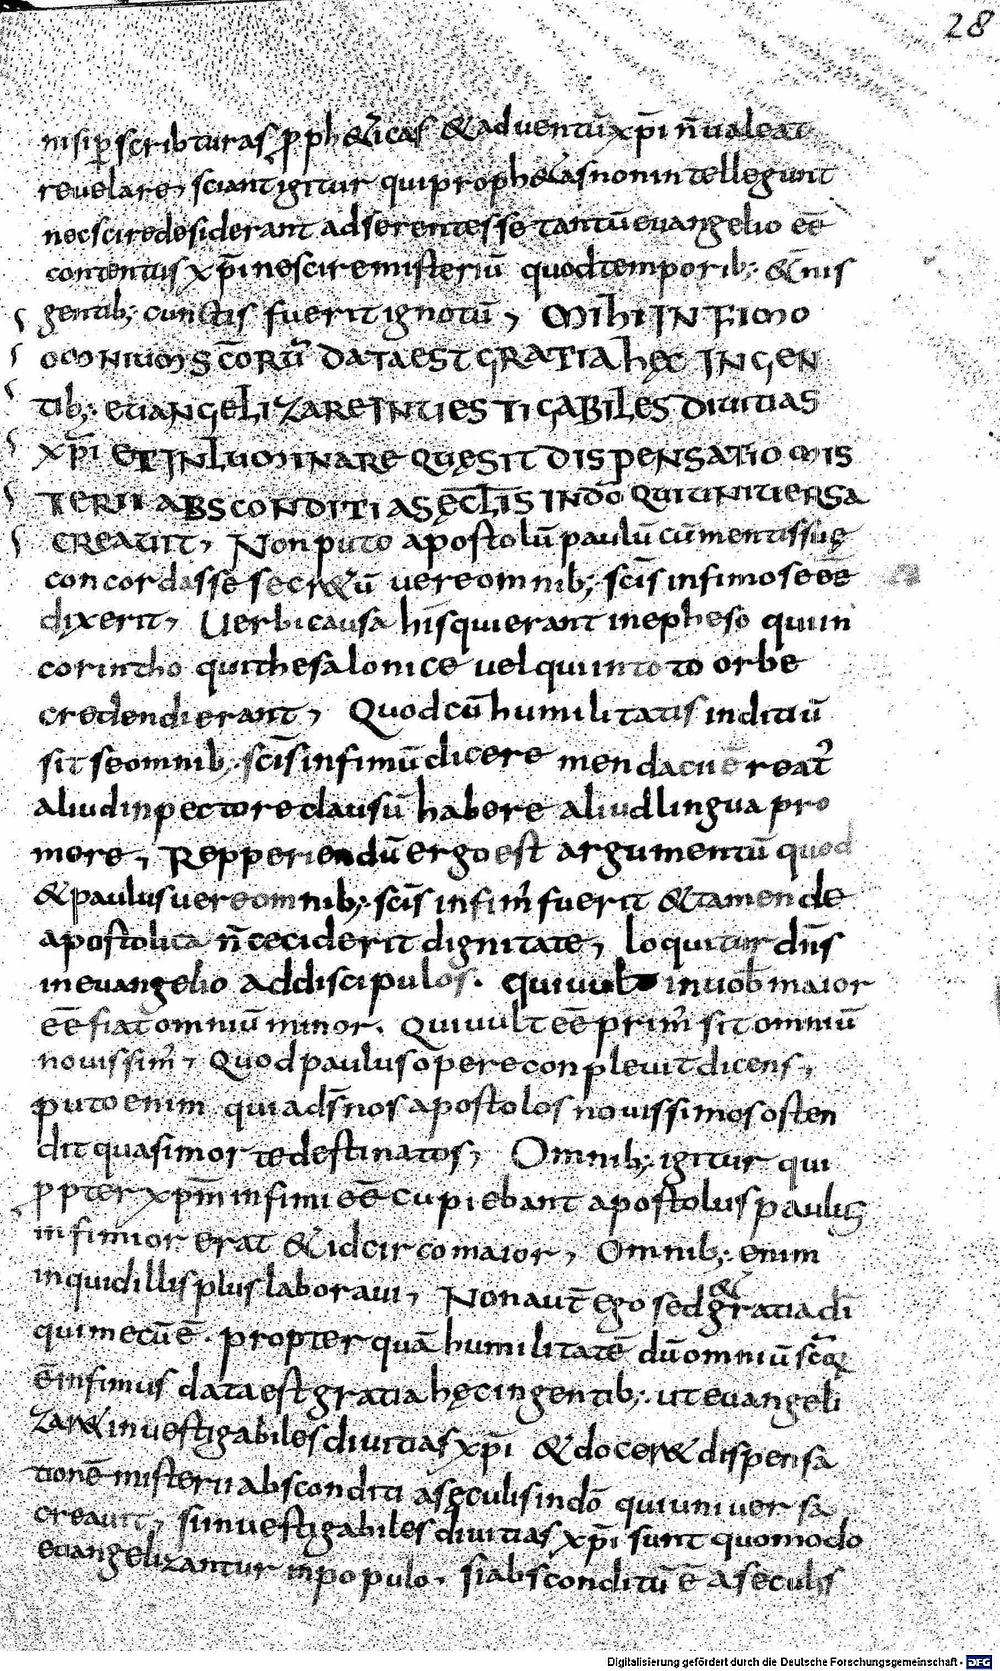 28
nisip̱scribturas ꝓph&icas & aduentū xp̄i n̄ ualeat
reuelare, sciant igitur qui proph&as non intellegunt
nec scire desiderant adserentes se tantū euangelio eē
contentus xp̄i nescire misteriū quod temporib; & nis
gentib; cunctis fuerit ignotū, MIHI INFIMO
OMNIUM SCORŪ DATA EST GRATIA hęc IN GEN
tib; EUANGELIZARE INUESTIGABILES DIUITIAS
xp̄i ET INLUMINARE QUĘ SIT DISPENSATIO MIS
TERII ABSCONDITI A SĘCLIS IN DŌ QUI UNIUERSA
CREAUIT, Non puto apostolū paulū cū mentis suę
concordasse secr&ū uere omnib; sc̄is infimo se eē
dixerit, Uerbi causa his qui erant in epheso qui in
corintho qui thesalonice uel qui in toto orbe
credendi erant, Quod cū humilitatis inditiū
sit se omnib; sc̄is infimū dicere mendacii ē reat᾽
aliud in pectore clausū habere aliud lingua pro
more, Repperiendū ergo est argumentū quod
& paulus uere omnib; sc̄is infim᾽ fuerit & tamen de
apostolica n̄ ceciderit dignitate, loquitur dn̄s
in euangelio ad discipulos. Qui uult in uob̄ maior
eē fiat omniū minor. Qui uult eē prim᾽ sit omniū
nouissim᾽, Quod paulus opere conpleuit dicens,
puto enim quia ds̄ nos apostolos nouissimos osten
dit quasi morte destinatos, Omnib; igitur qui
ꝓpter xp̄m infimi eē cupiebant apostolus paulus
infimior erat & idcirco maior, Omnib; enim
inquid illis plus laboraui, Non aut̄ ego sed gratia dī
&
qui mecū ē. propter quā humilitatē dū omniū sc̄oꝝ
ē infimus data est gratia hęc in gentib; ut euangeli
zar& inuestigabiles diuitias xp̄i & docer& dispensa
tionē misterii absconditi a sęculis in dō qui uniuersa
creauit, si inuestigabiles diuitias xp̄i sunt quomodo
euangelizantur in populo, si absconditū ē a seculis
Digitalisierung gefördert durch die Deutsche Forschungsgemeinschaft - DFG